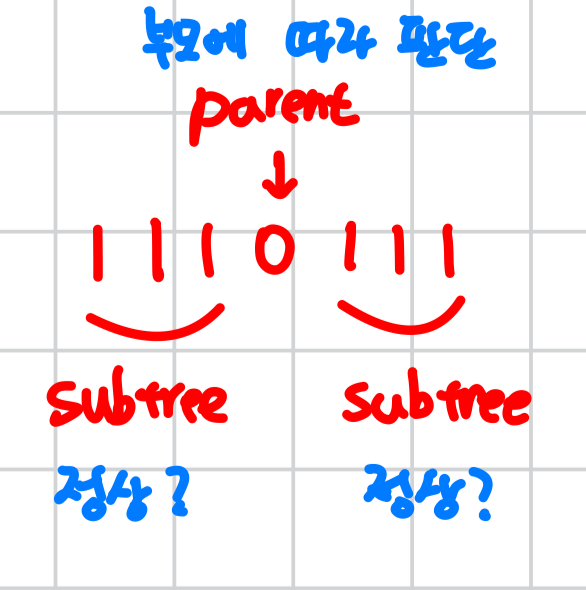 부모에 따라 판단
parent
1110111
subtree subtree
정상? 정상?